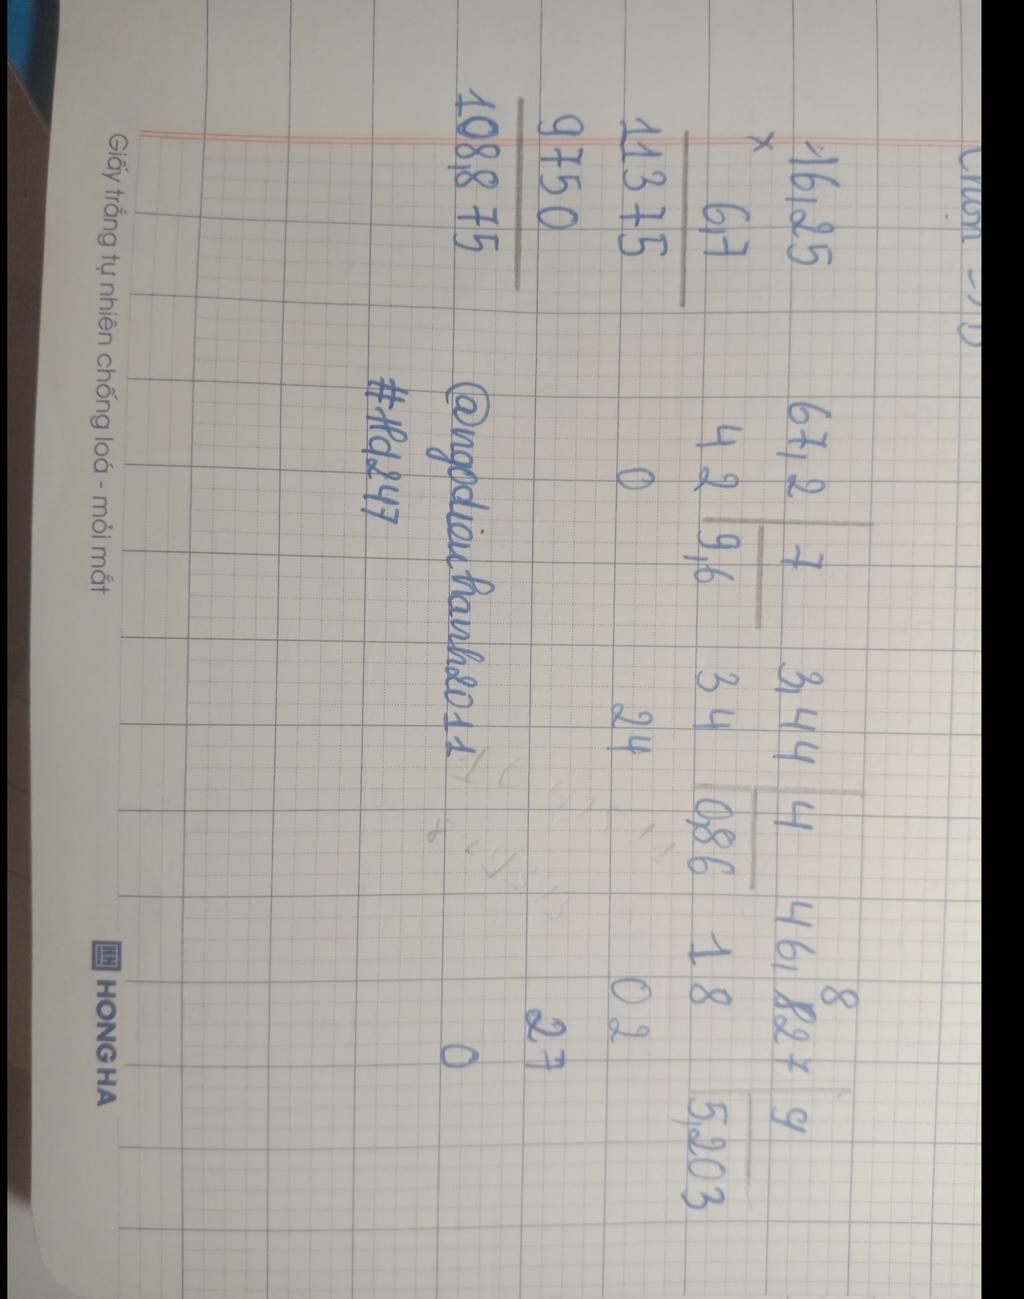 16,25 67,2 7 3,44 4 46,827 9
8
×
6,7 42 9,6 34 0,86 18 5,203
11375 0 24 02
9750 27
108,875 @ngodieuhanh2011 0
#Hd247
Giấy trắng tự nhiên chống loá - mỏi mắt HONG HA